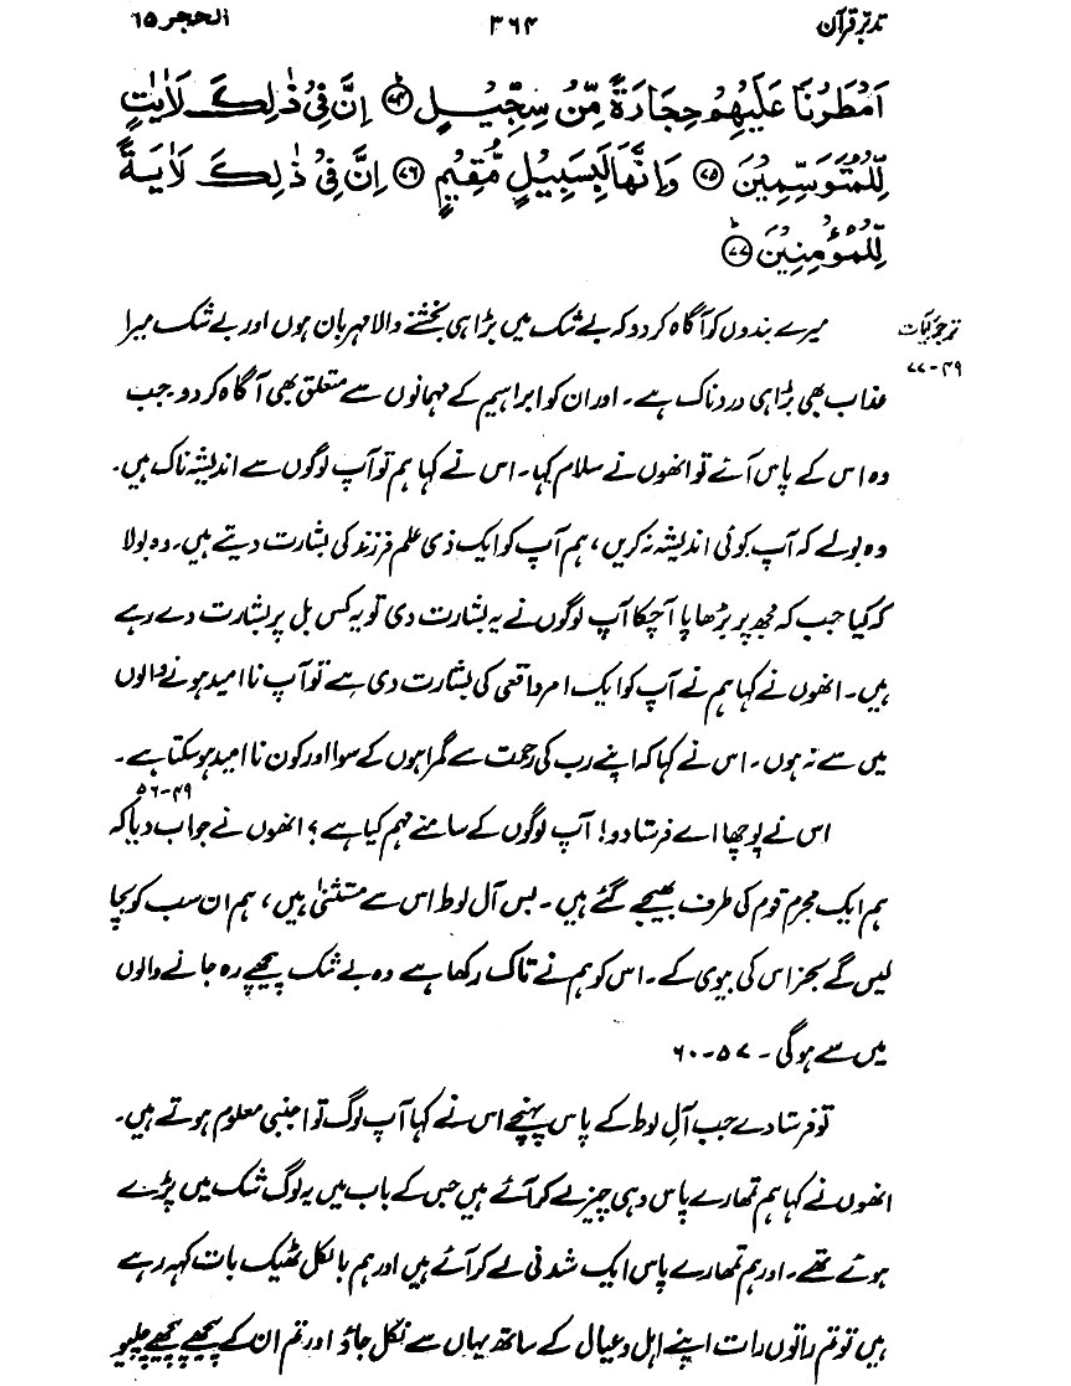 تدبرِ قرآن ۳۶۴ الحجر ۱۵
اَمْطَرْنَا عَلَيْهِمْ حِجَارَةً مِّنْ سِجِّيْلٍ ﴿۷۴﴾ اِنَّ فِيْ ذٰلِكَ لَاٰيٰتٍ
لِّلْمُتَوَسِّمِيْنَ ﴿۷۵﴾ وَاِنَّهَا لَبِسَبِيْلٍ مُّقِيْمٍ ﴿۷۶﴾ اِنَّ فِيْ ذٰلِكَ لَاٰيَةً
لِّلْمُؤْمِنِيْنَ ﴿۷۷﴾
ترجمۂ آیات
۴۹-۷۷
میرے بندوں کو آگاہ کر دو کہ بے شک میں بڑا ہی بخشنے والا مہربان ہوں اور بے شک میرا
عذاب بھی بڑا ہی دردناک ہے۔ اور ان کو ابراہیم کے مہمانوں سے متعلق بھی آگاہ کر دو۔ جب
وہ اس کے پاس آئے تو انھوں نے سلام کہا۔ اس نے کہا ہم تو آپ لوگوں سے اندیشہ ناک ہیں۔
وہ بولے کہ آپ کوئی اندیشہ نہ کریں، ہم آپ کو ایک ذی علم فرزند کی بشارت دیتے ہیں۔ وہ بولا
کہ کیا جب کہ مجھ پر بڑھاپا آچکا آپ لوگوں نے یہ بشارت دی تو یہ کس بل پر بشارت دے رہے
ہیں۔ انھوں نے کہا ہم نے آپ کو ایک امر واقعی کی بشارت دی ہے تو آپ نا امید ہونے والوں
میں سے نہ ہوں۔ اس نے کہا کہ اپنے رب کی رحمت سے گمراہوں کے سوا اور کون نا امید ہو سکتا ہے۔
۴۹-۵۶
اس نے پوچھا اے فرستادو! آپ لوگوں کے سامنے مہم کیا ہے؟ انھوں نے جواب دیا کہ
ہم ایک مجرم قوم کی طرف بھیجے گئے ہیں۔ بس آل لوط اس سے مستثنیٰ ہیں، ہم ان سب کو بچا
لیں گے بجز اس کی بیوی کے۔ اس کو ہم نے تاک رکھا ہے وہ بے شک پیچھے رہ جانے والوں
میں سے ہوگی۔ ۵۷-۶۰
تو فرستادے جب آلِ لوط کے پاس پہنچے اس نے کہا آپ لوگ تو اجنبی معلوم ہوتے ہیں۔
انھوں نے کہا ہم تمھارے پاس وہی چیز لے کر آئے ہیں جس کے باب میں یہ لوگ شک میں پڑے
ہوئے تھے۔ اور ہم تمھارے پاس ایک شدنی لے کر آئے ہیں اور ہم بالکل ٹھیک بات کہہ رہے
ہیں تو تم راتوں رات اپنے اہل و عیال کے ساتھ یہاں سے نکل جاؤ اور تم ان کے پیچھے پیچھے چلیو